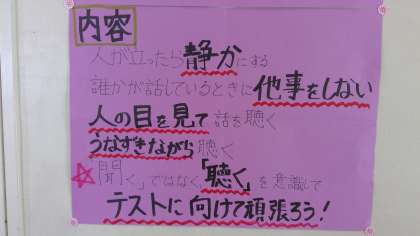 内容
人が立ったら静かにする
誰かが話しているときに他事をしない
人の目を見て話を聴く
うなずきながら聴く
☆「聞く」ではなく「聴く」を意識して
テストに向けて頑張ろう!